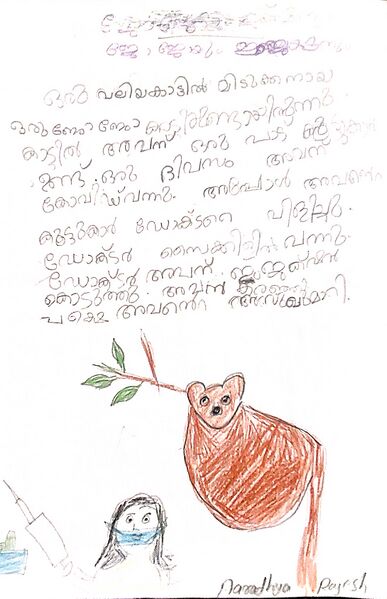 ജോജോയും ഇഞ്ചക്ഷനും
ഒരു വലിയകാട്ടിൽ മിടുക്കനായ
ഒരു ജോജോ ഉണ്ടായിരുന്നു.
കാട്ടിൽ അവന് ഒരു പാട് കൂട്ടുകാർ
ഉണ്ട്. ഒരു ദിവസം അവന്
കോവിഡ് വന്നു. അപ്പോൾ അവന്റെ
കൂട്ടുകാർ ഡോക്ടറെ വിളിച്ചു.
ഡോക്ടർ സൈക്കിളിൽ വന്നു.
ഡോക്ടർ അവന് ഇഞ്ചക്ഷൻ
കൊടുത്തു. അവൻ കരഞ്ഞു
പക്ഷെ അവന്റെ അസുഖംമാറി.
Rajesh